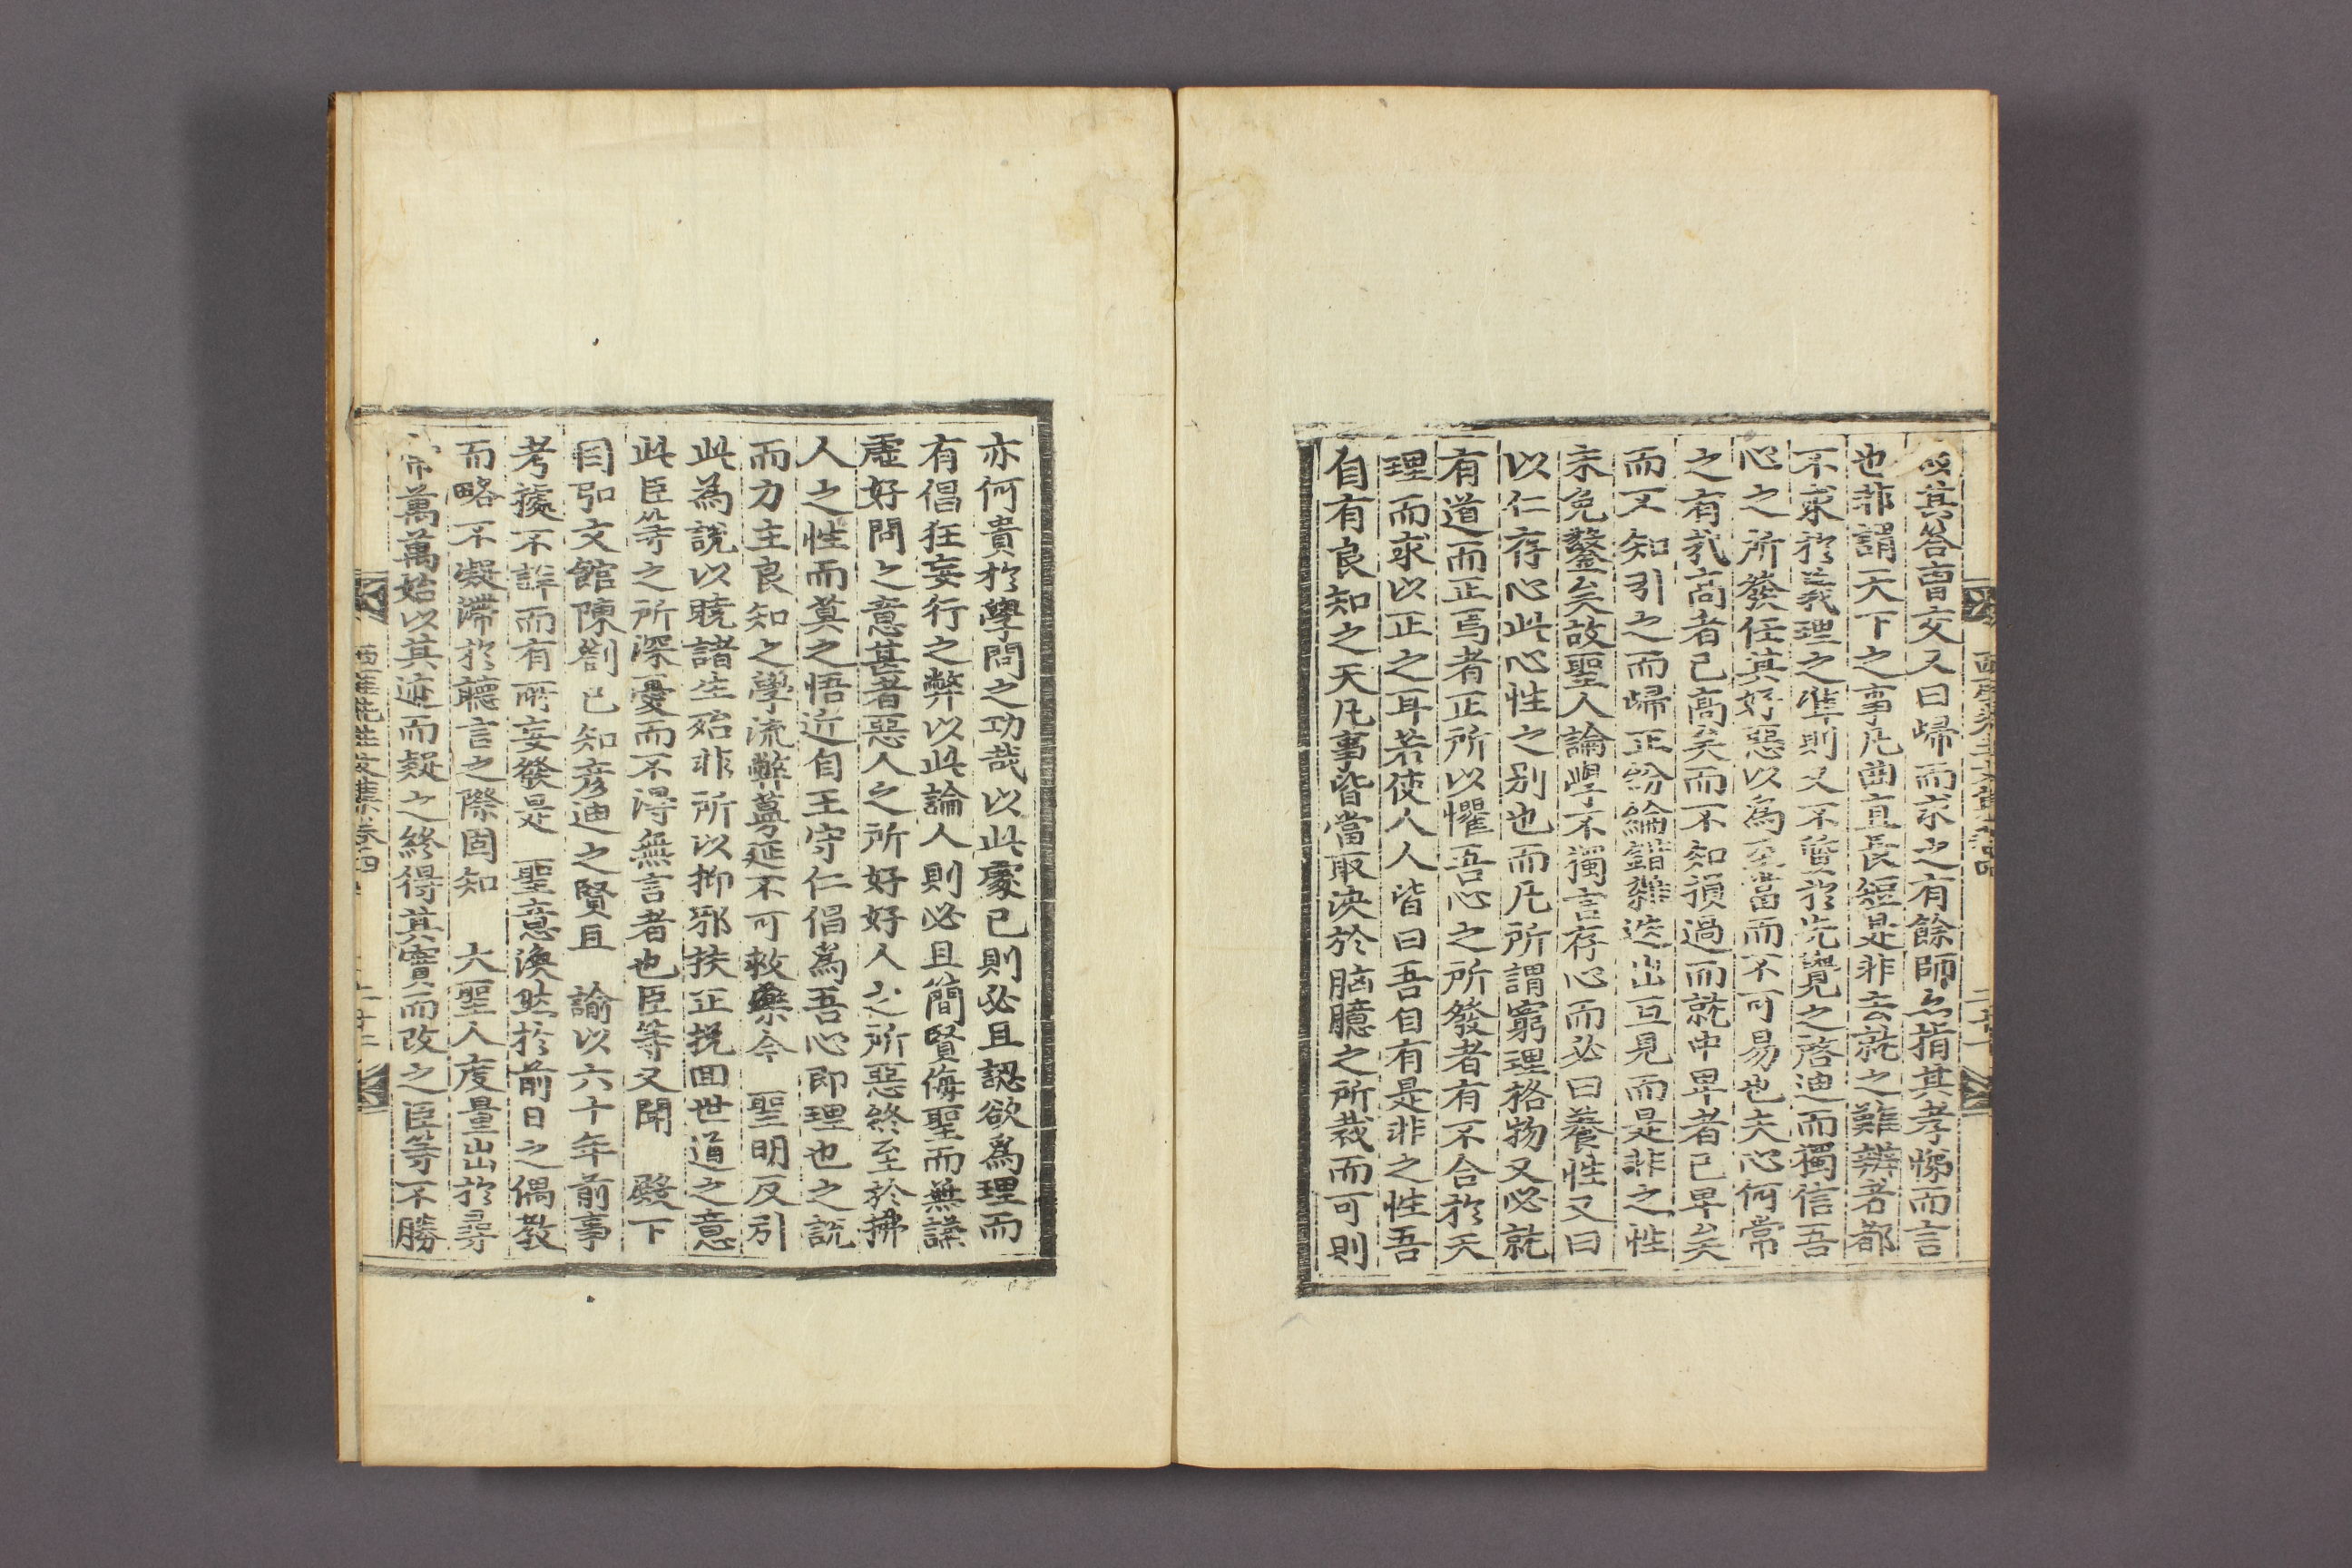 其答曺交又曰歸而求之有餘師亦指其孝悌而言
也非謂天下之事凡曲直長短是非去就之難辨者都
不求於義理之準則又不質於先覺之啓迪而獨信吾
心之所發任其好惡以為至當而不可易也夫心何常
之有氣高者已高矣而不知損過而就中卑者已卑矣
而不知引之而歸正紛綸錯雜迭出互見而是非之性
未免鑿矣故聖人論學不獨言存心而必曰養性又曰
以仁存心此心性之别也而凡所謂窮理格物又必就
有道而正焉者正所以懼吾心之所發者有不合於天
理而求以正之耳若使人人皆曰吾自有是非之性吾
自有良知之天凡事皆當取決於胸臆之所裁而可則
二十一
亦何貴於學問之功哉以此處已則必且認欲爲理而
有倡狂妄行之弊以此論人則必且簡賢侮聖而無謙
虛好問之意甚者惡人之所好好人之所惡終至於拂
人之性而莫之悟近自王守仁倡爲吾心即理也之説
而力主良知之學流弊蔓延不可救藥今 聖明反引
此為説以曉諸生殆非所以抑邪扶正挽回世道之意
此臣等之所深憂而不得無言者也臣等又聞 殿下
因弘文館陳劄已知彦迪之賢且 諭以六十年前事
考據不詳而有所妄發是 聖意渙然於前日之偶教
而略不凝滯於聽言之際固知 大聖人度量出於尋
常萬萬始以其迹而疑之終得其實而改之臣等不勝
西厓先生文集卷四
二十二